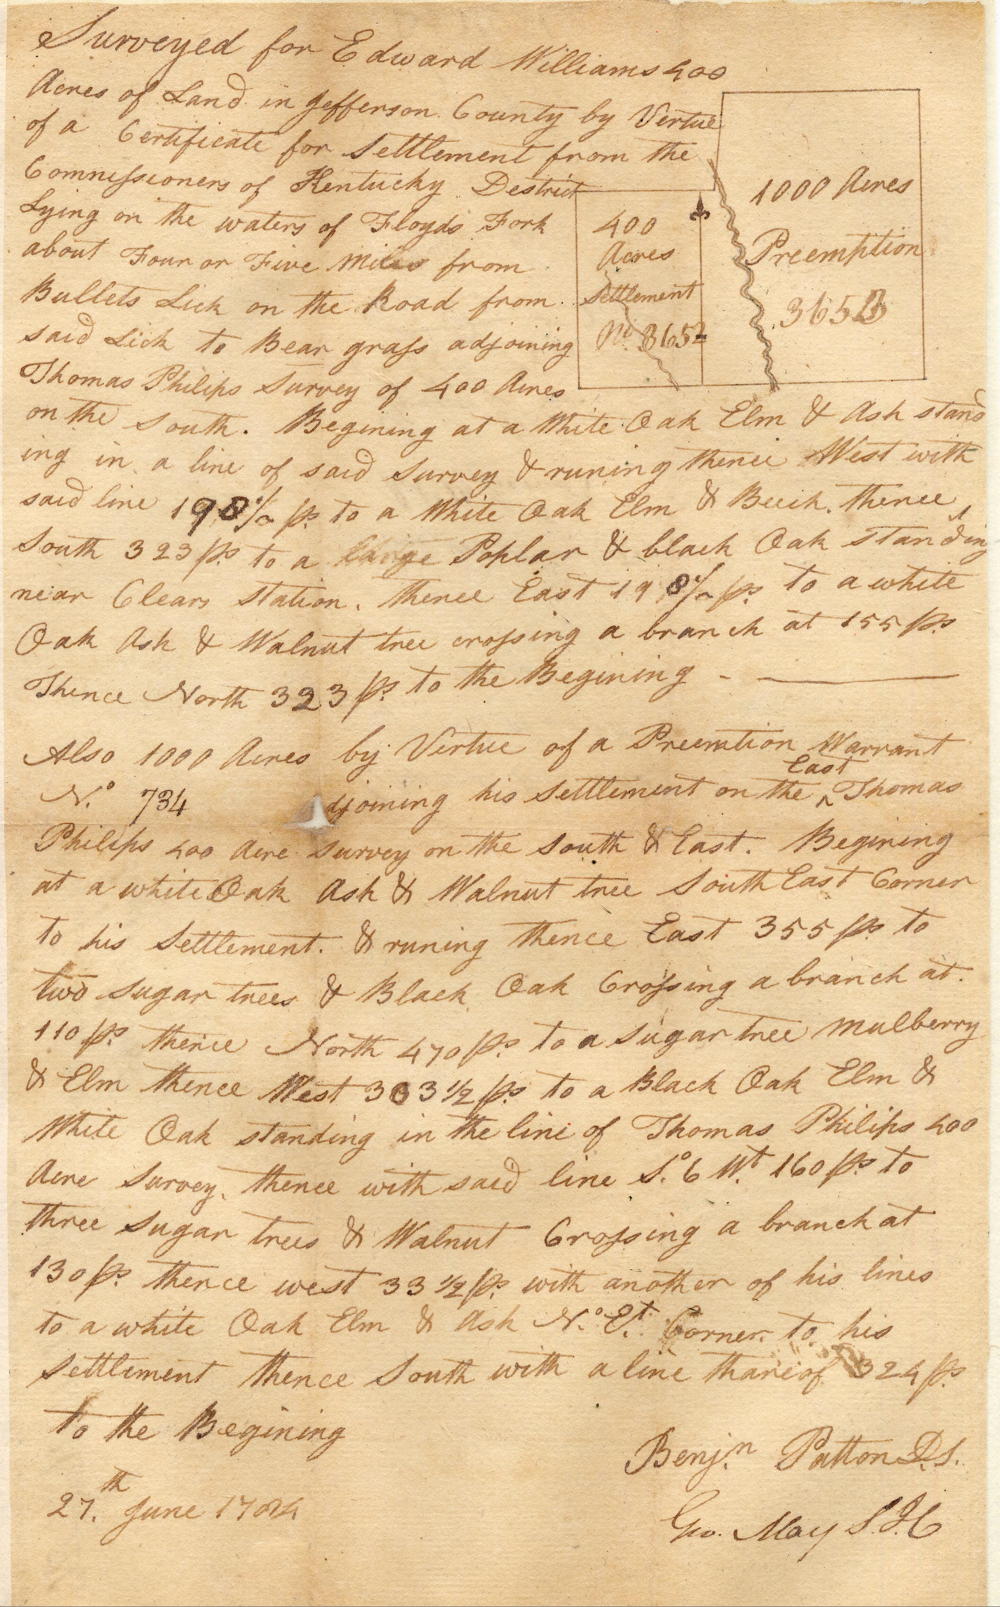 Surveyed for Edward Williams 400
Acres of Land in Jefferson County by Vertue
of a Certificate for Settlement from the
Commissioners of Kentucky District
Lying on the waters of Floyds Fork
about Four or Five Miles from
Bullets Lick on the Road from
said Lick to Bear grass adjoining
Thomas Philips Survey of 400 Acres
on the South. Begining at a White Oak Elm & Ash stand
ing in a line of said Survey & runing thence West with
said line 198½ ps. to a White Oak Elm & Beech. thence
South 323 ps. to a large Poplar & black Oak standing
near Clears Station. thence East 198½ ps. to a white
Oak Ash & Walnut tree crossing a branch at 155 ps.
Thence North 323 ps. to the Begining
400
Acres
Settlement
No. 3652
1000 Acres
Preemption
3653
Also 1000 Acres by Vertue of a Preemtion Warrant
No. 734 adjoining his Settlement on the ^East Thomas
Philips 400 Acre Survey on the South & East. Begining
at a white Oak Ash & Walnut tree South East Corner
to his Settlement. & runing thence East 355 ps. to
two sugar trees & Black Oak Crossing a branch at
110 ps. thence North 470 ps. to a sugar tree mulberry
& Elm thence West 303½ ps. to a Black Oak Elm &
White Oak standing in the line of Thomas Philips 400
Acre Survey. thence with said line So. 6 Wt. 160 ps. to
three sugar trees & Walnut Crossing a branch at
130 ps. thence west 33½ ps. with another of his lines
to a white Oak Elm & Ash No. Et. Corner to his
Settlement thence South with a line thareof 324 ps.
to the Begining
Benjn. Patton D.S.
27.th June 1784
Geo. May S.J.C